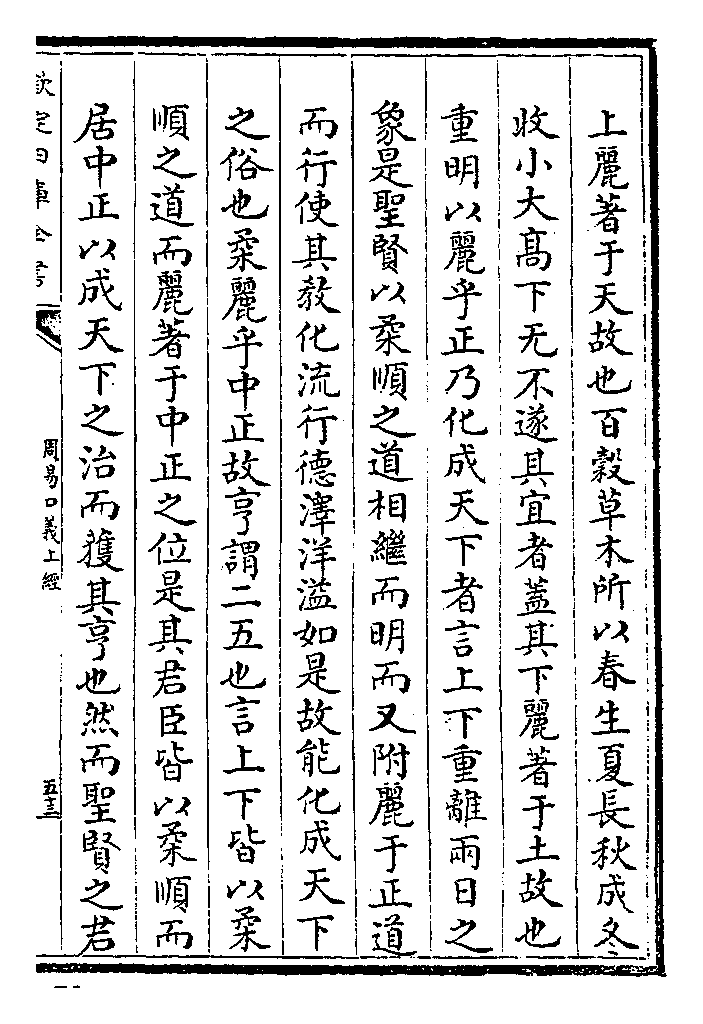 上麗著于天故也百穀草木所以春生夏長秋成冬
收小大髙下无不遂其宜者蓋其下麗著于土故也
重明以麗乎正乃化成天下者言上下重離兩日之
象是聖賢以柔順之道相繼而明而又附麗于正道
而行使其敎化流行德澤洋溢如是故能化成天下
之俗也柔麗乎中正故亨謂二五也言上下皆以柔
順之道而麗著于中正之位是其君臣皆以柔順而
居中正以成天下之治而獲其亨也然而聖賢之君
欽定四庫全書
周易口義上經
五十三